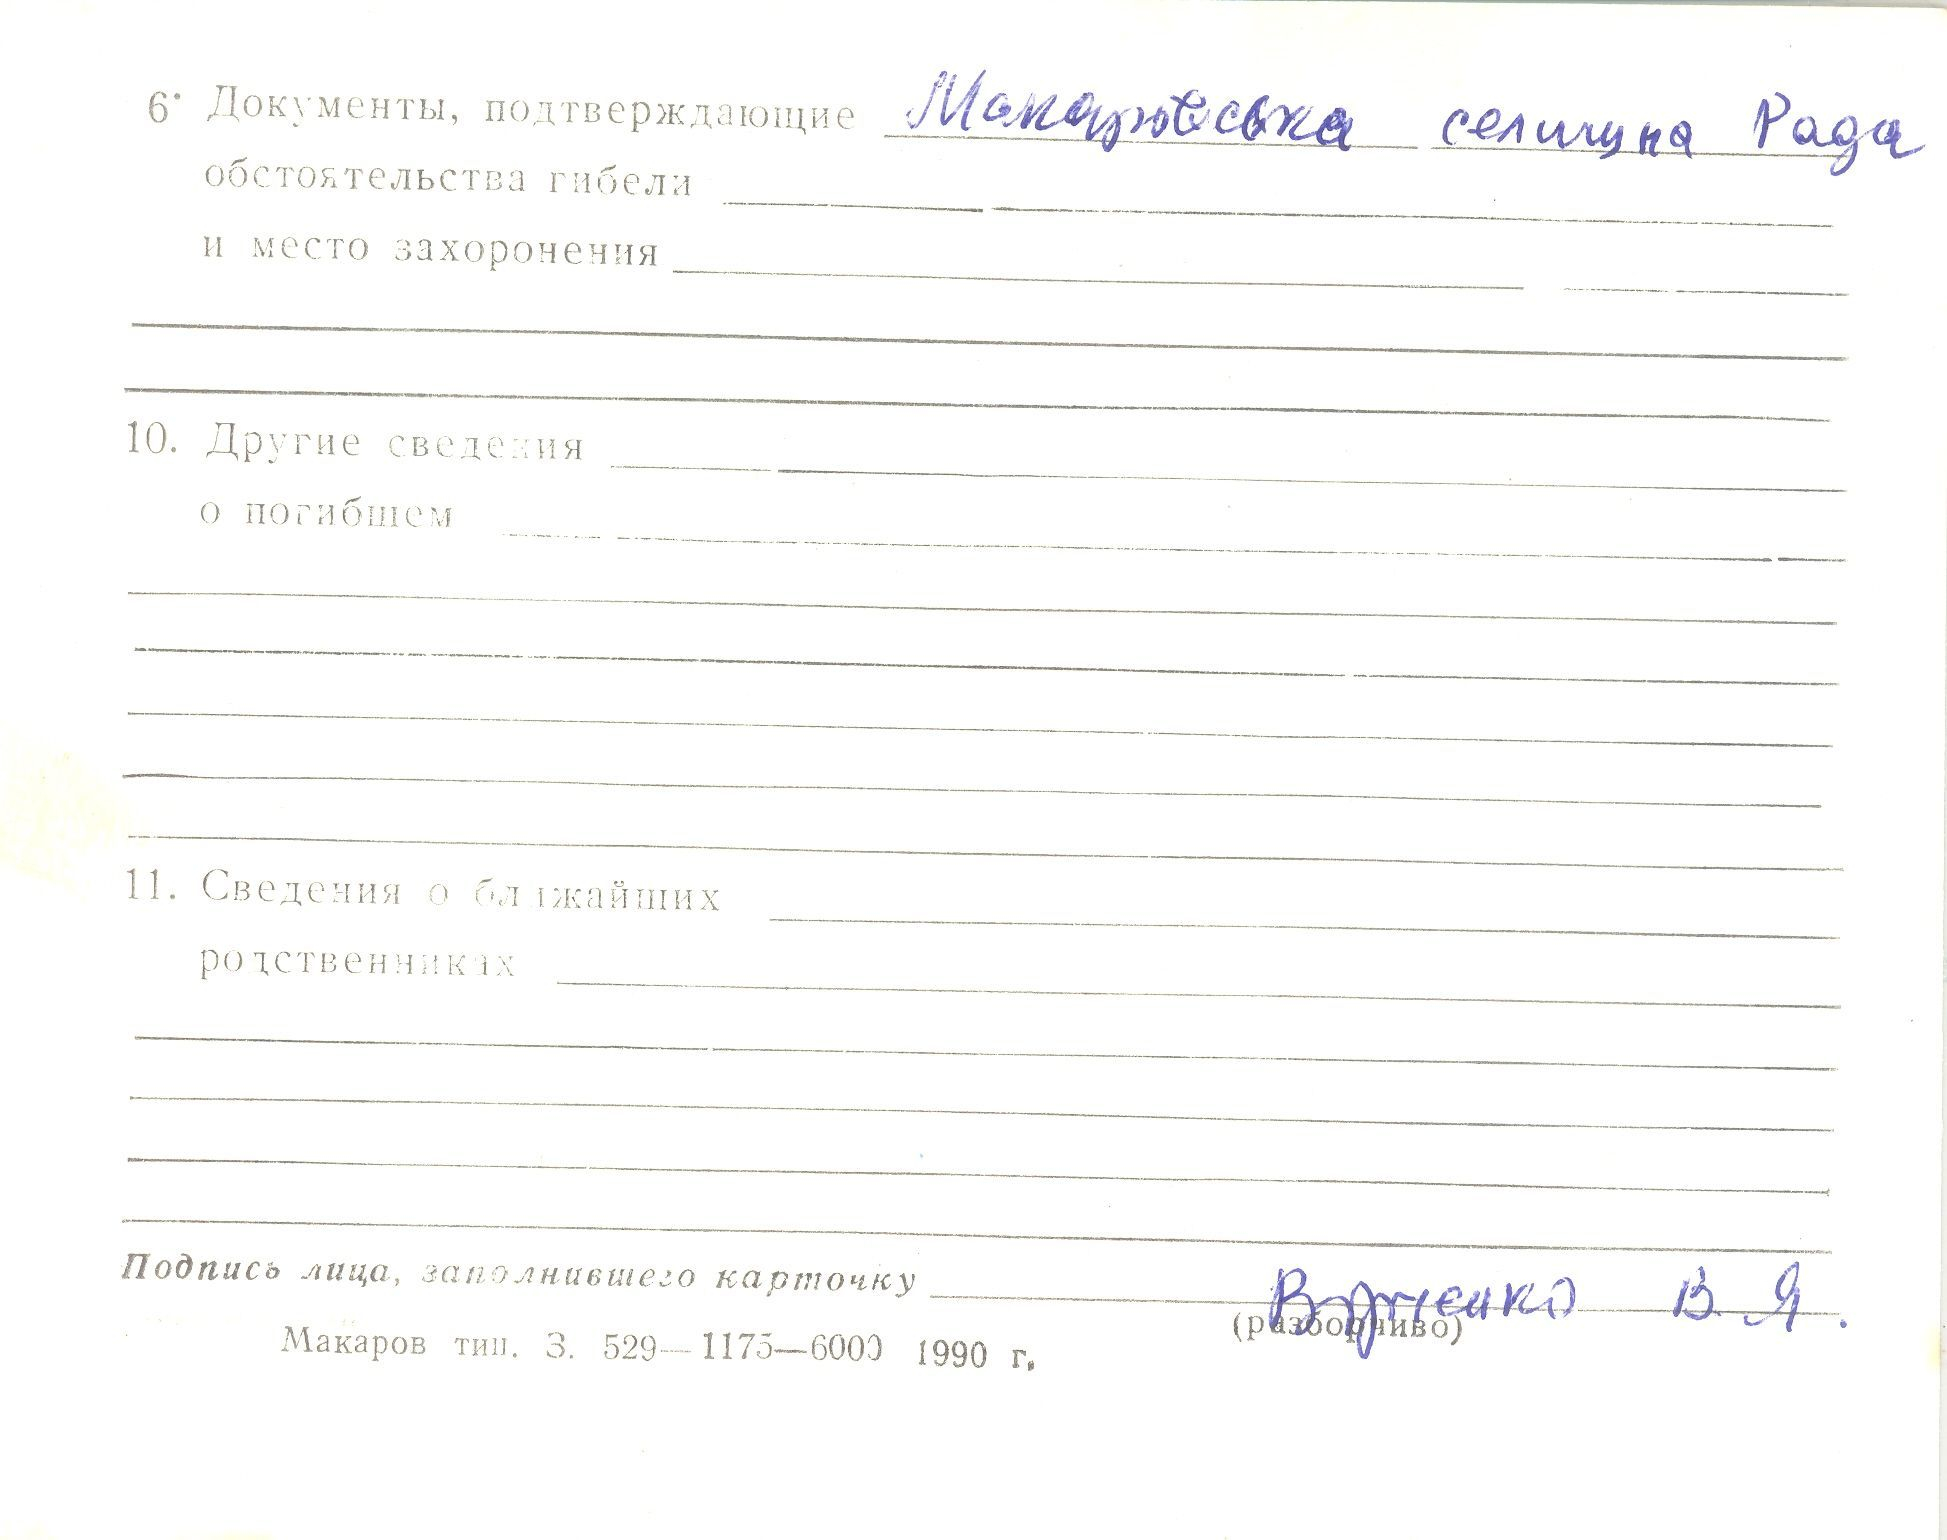 6. Документы, подтверждающие Макарівська селищна Рада
обстоятельства гибели
и место захоронения
10. Другие сведения
о погибшем
11. Сведения о ближайших
родственниках
Подпись лица, заполнившего карточку В. Я.
(разборчиво)
Макаров тип. З. 529—1175—6000 1990 г.